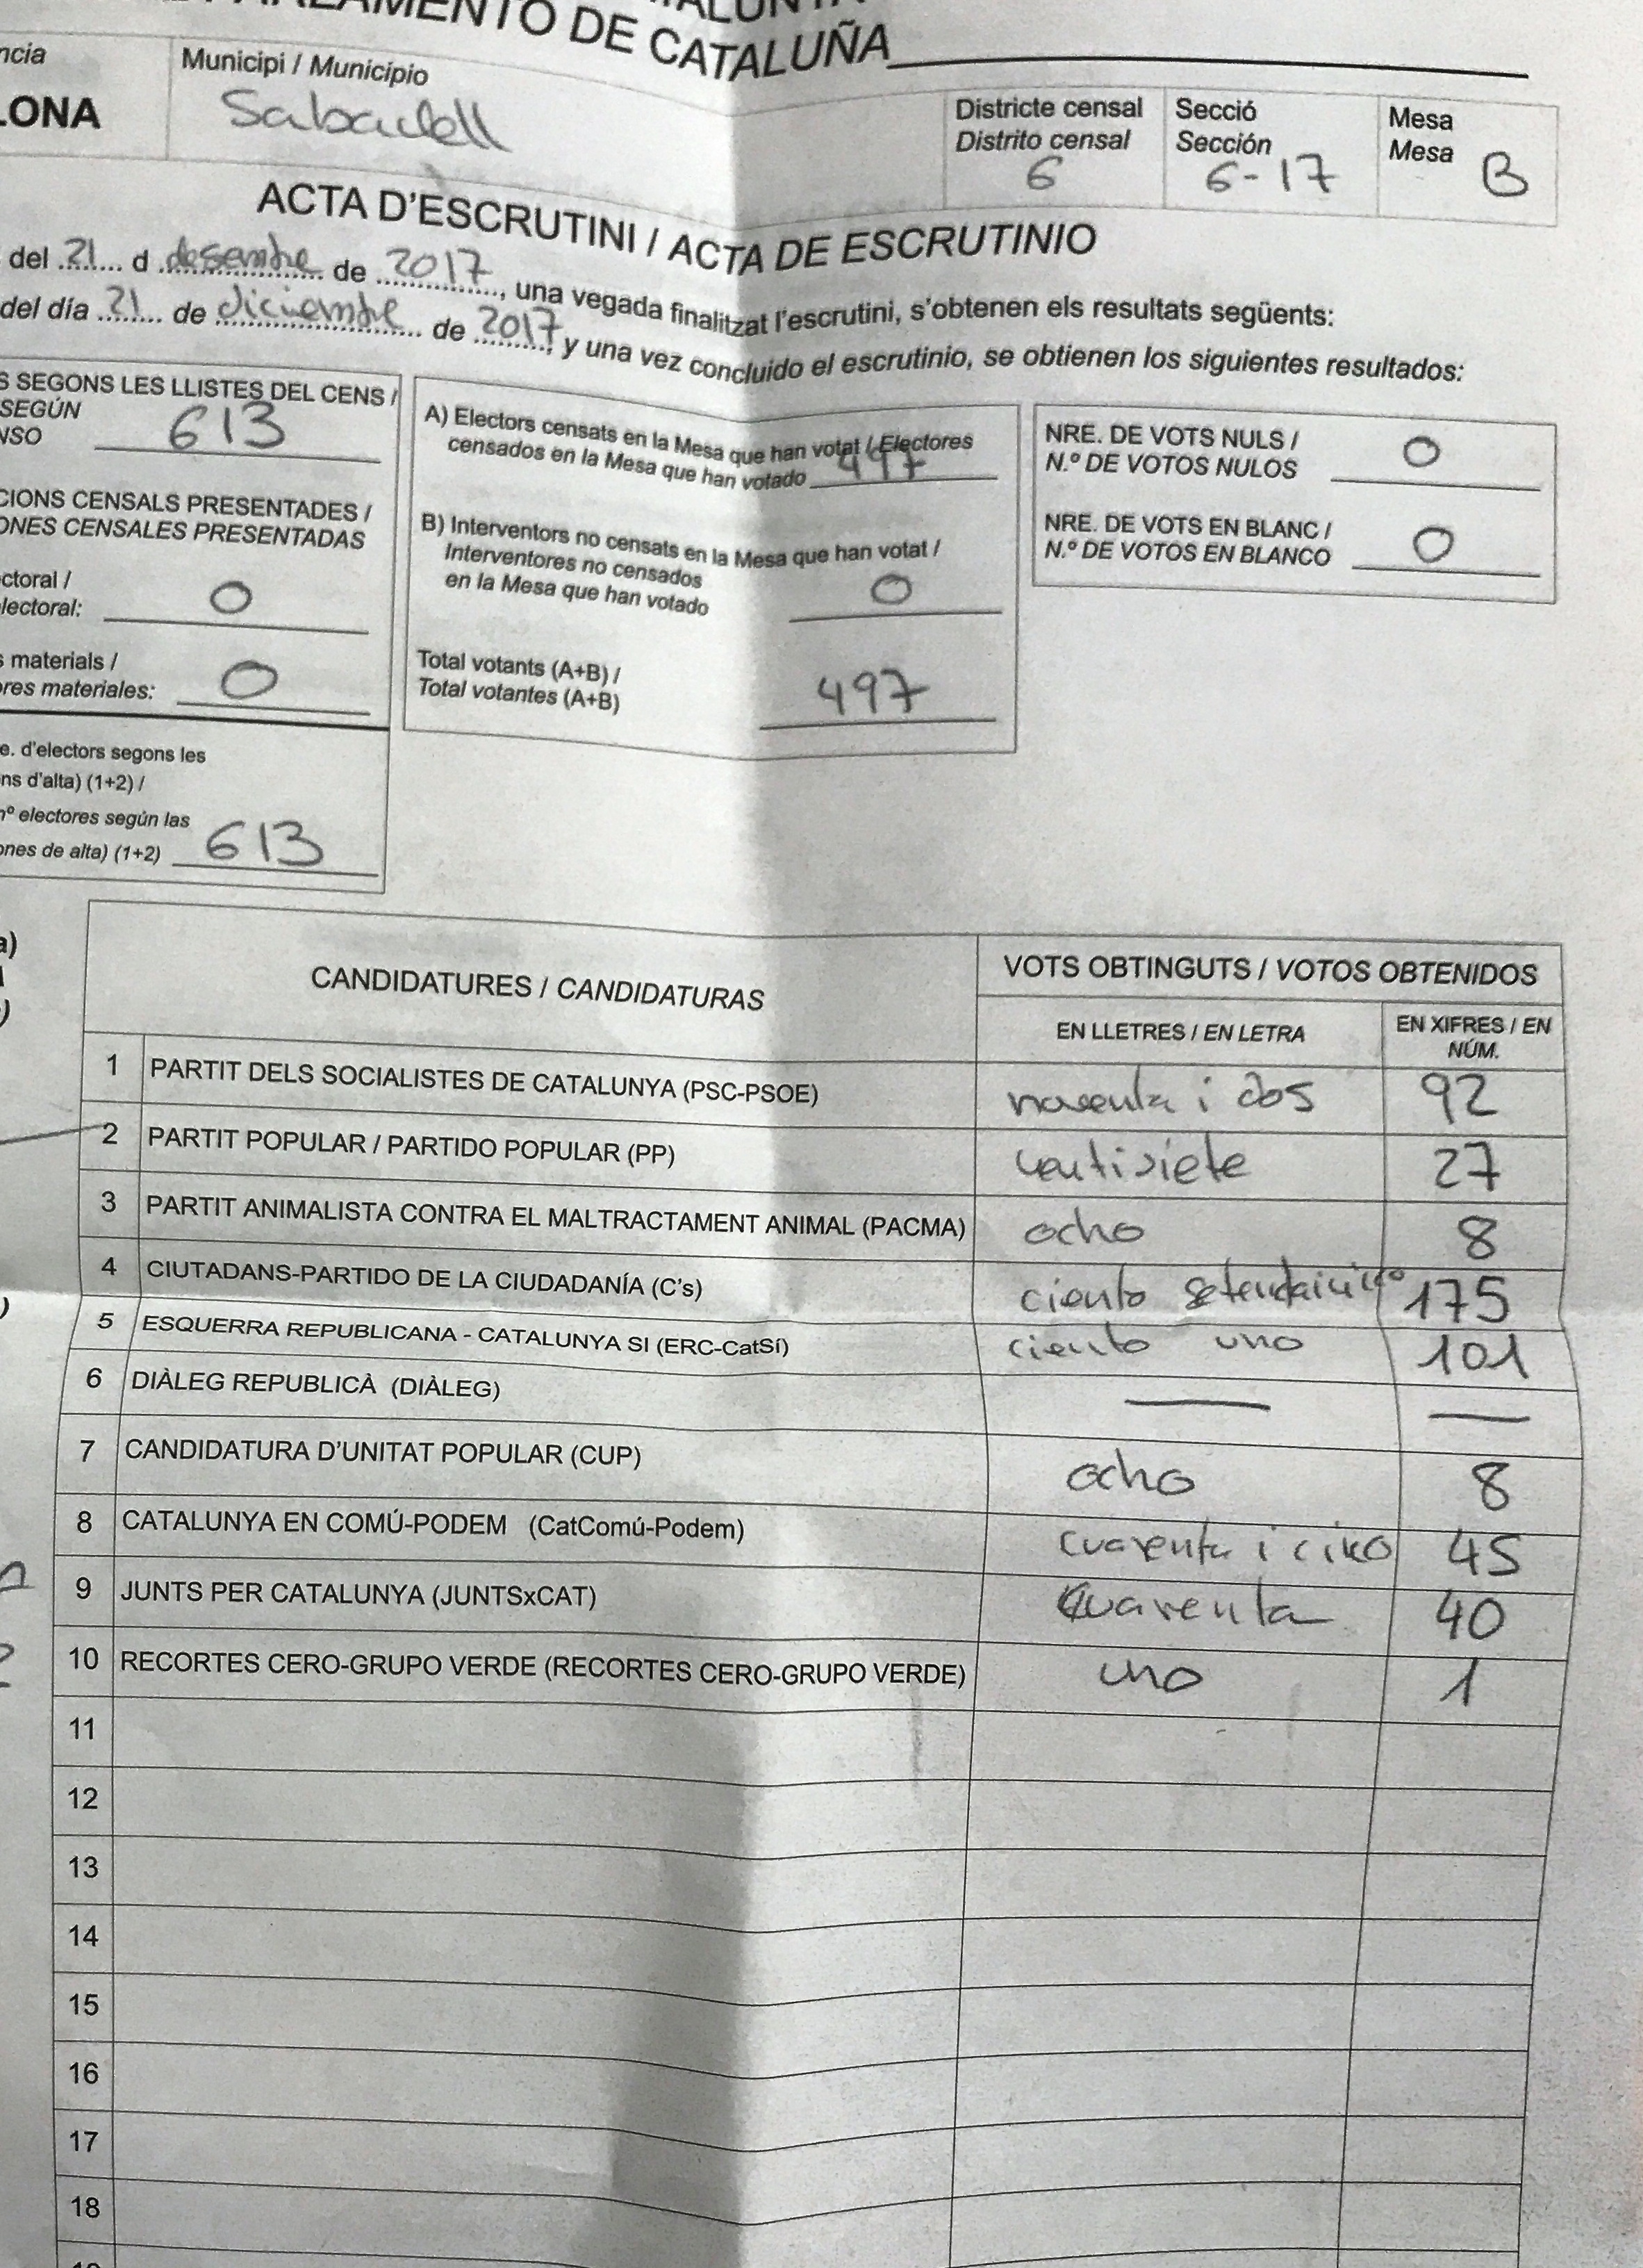 PARLAMENTO DE CATALUÑA
ncia
LONA
Municipi / Municipio
Sabadell
Districte censal
Distrito censal
6
Secció
Sección
6-17
Mesa
Mesa
B
ACTA D'ESCRUTINI / ACTA DE ESCRUTINIO
del 21 d desembre de 2017, una vegada finalitzat l'escrutini, s'obtenen els resultats següents:
del día 21 de diciembre de 2017, y una vez concluido el escrutinio, se obtienen los siguientes resultados:
S SEGONS LES LLISTES DEL CENS /
SEGÚN
NSO 613
CIONS CENSALS PRESENTADES /
ONES CENSALES PRESENTADAS
ctoral /
lectoral: 0
s materials /
ores materiales: 0
e. d'electors segons les
ns d'alta) (1+2) /
nº electores según las
ones de alta) (1+2) 613
A) Electors censats en la Mesa que han votat / Electores
censados en la Mesa que han votado 497
B) Interventors no censats en la Mesa que han votat /
Interventores no censados
en la Mesa que han votado 0
Total votants (A+B) /
Total votantes (A+B) 497
NRE. DE VOTS NULS /
N.º DE VOTOS NULOS 0
NRE. DE VOTS EN BLANC /
N.º DE VOTOS EN BLANCO 0
a)
CANDIDATURES / CANDIDATURAS
VOTS OBTINGUTS / VOTOS OBTENIDOS
EN LLETRES / EN LETRA
EN XIFRES / EN
NÚM.
1 PARTIT DELS SOCIALISTES DE CATALUNYA (PSC-PSOE) noventa i dos 92
2 PARTIT POPULAR / PARTIDO POPULAR (PP) ventisiete 27
3 PARTIT ANIMALISTA CONTRA EL MALTRACTAMENT ANIMAL (PACMA) ocho 8
4 CIUTADANS-PARTIDO DE LA CIUDADANÍA (C's) ciento 175
5 ESQUERRA REPUBLICANA - CATALUNYA SI (ERC-CatSí) ciento uno 101
6 DIÀLEG REPUBLICÀ (DIÀLEG) — —
7 CANDIDATURA D'UNITAT POPULAR (CUP) ocho 8
8 CATALUNYA EN COMÚ-PODEM (CatComú-Podem) cuarenta i 45
9 JUNTS PER CATALUNYA (JUNTSxCAT) cuarenta 40
10 RECORTES CERO-GRUPO VERDE (RECORTES CERO-GRUPO VERDE) uno 1
11
12
13
14
15
16
17
18